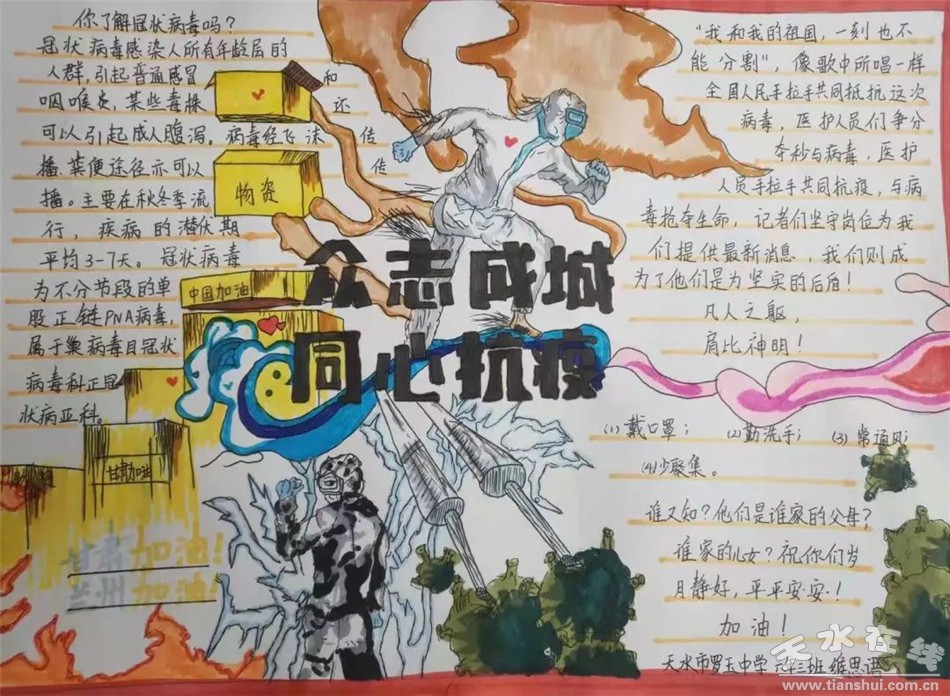 你了解冠状病毒吗？
冠状病毒感染人所有年龄层的
人群，引起普通感冒 和
咽喉炎，某些毒株 还
可以引起成人腹泻。病毒经飞沫 传
播，粪便途径亦可以 传
播。主要在秋冬季流
行，疾病的潜伏期
平均3-7天。冠状病毒
为不分节段的单
股正链PNA病毒，
属于巢病毒目冠状
病毒科正冠
状病亚科。
物资
中国加油！
甘肃加油
甘肃加油！
兰州加油！
众志成城
同心抗疫
“我和我的祖国，一刻也不
能分割”，像歌中所唱一样
全国人民手拉手共同抵抗这次
病毒，医护人员们争分
夺秒与病毒，医护
人员手拉手共同抗疫，与病
毒抢夺生命，记者们坚守岗位为我
们提供最新消息，我们则成
为了他们是为坚实的后盾！
凡人之躯，
肩比神明！
(1) 戴口罩； (2) 勤洗手； (3) 常通风；
(4) 少聚集。
谁又知？他们是谁家的父母？
谁家的儿女？祝你们岁
月静好，平平安安！
加油！
天水市罗玉中学 三班
天水在线
www.tianshui.com.cn